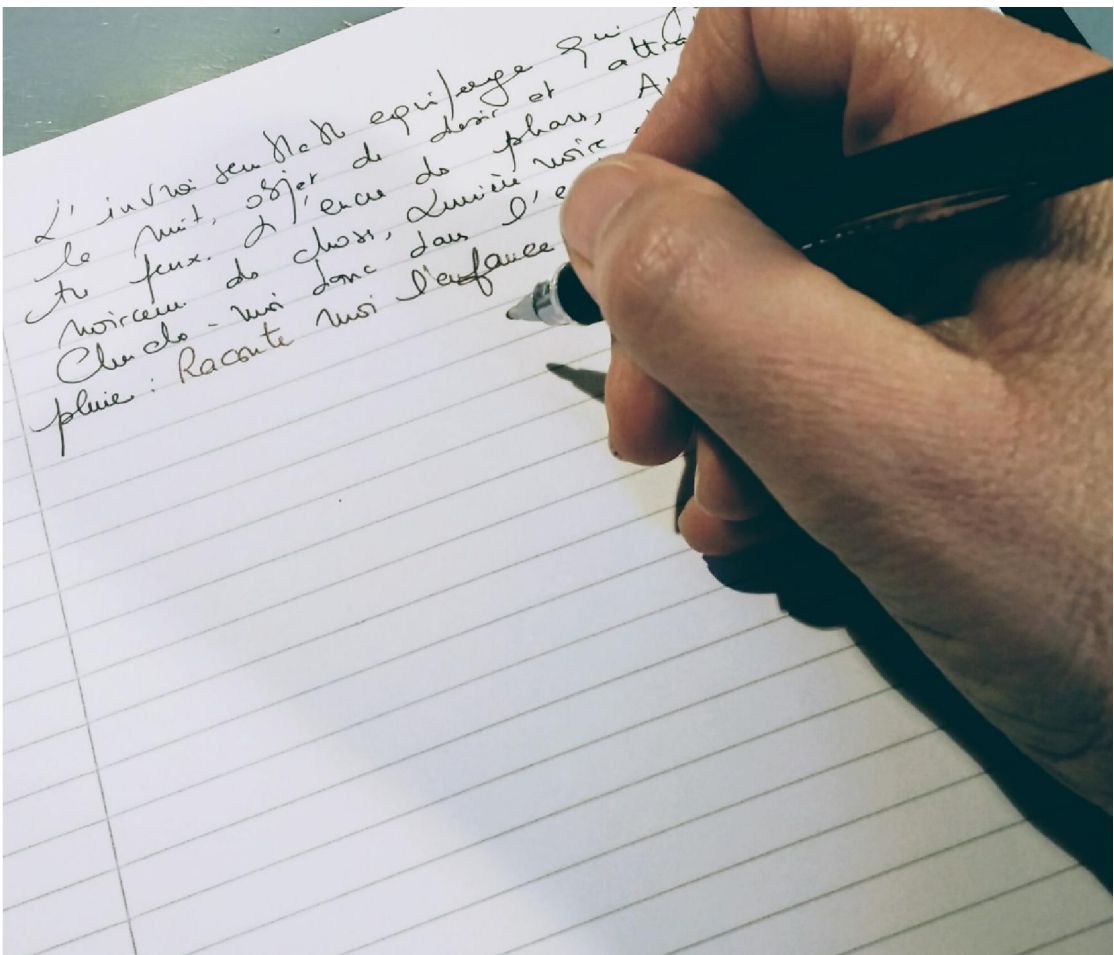 L'invraisemblable équipage qui
la nuit, objet de désir et
tes feux. L'encre des phares,
noirceur des choses, Lumière noire
Cherche-moi donc dans l'e
pluie : Raconte moi l'enfance